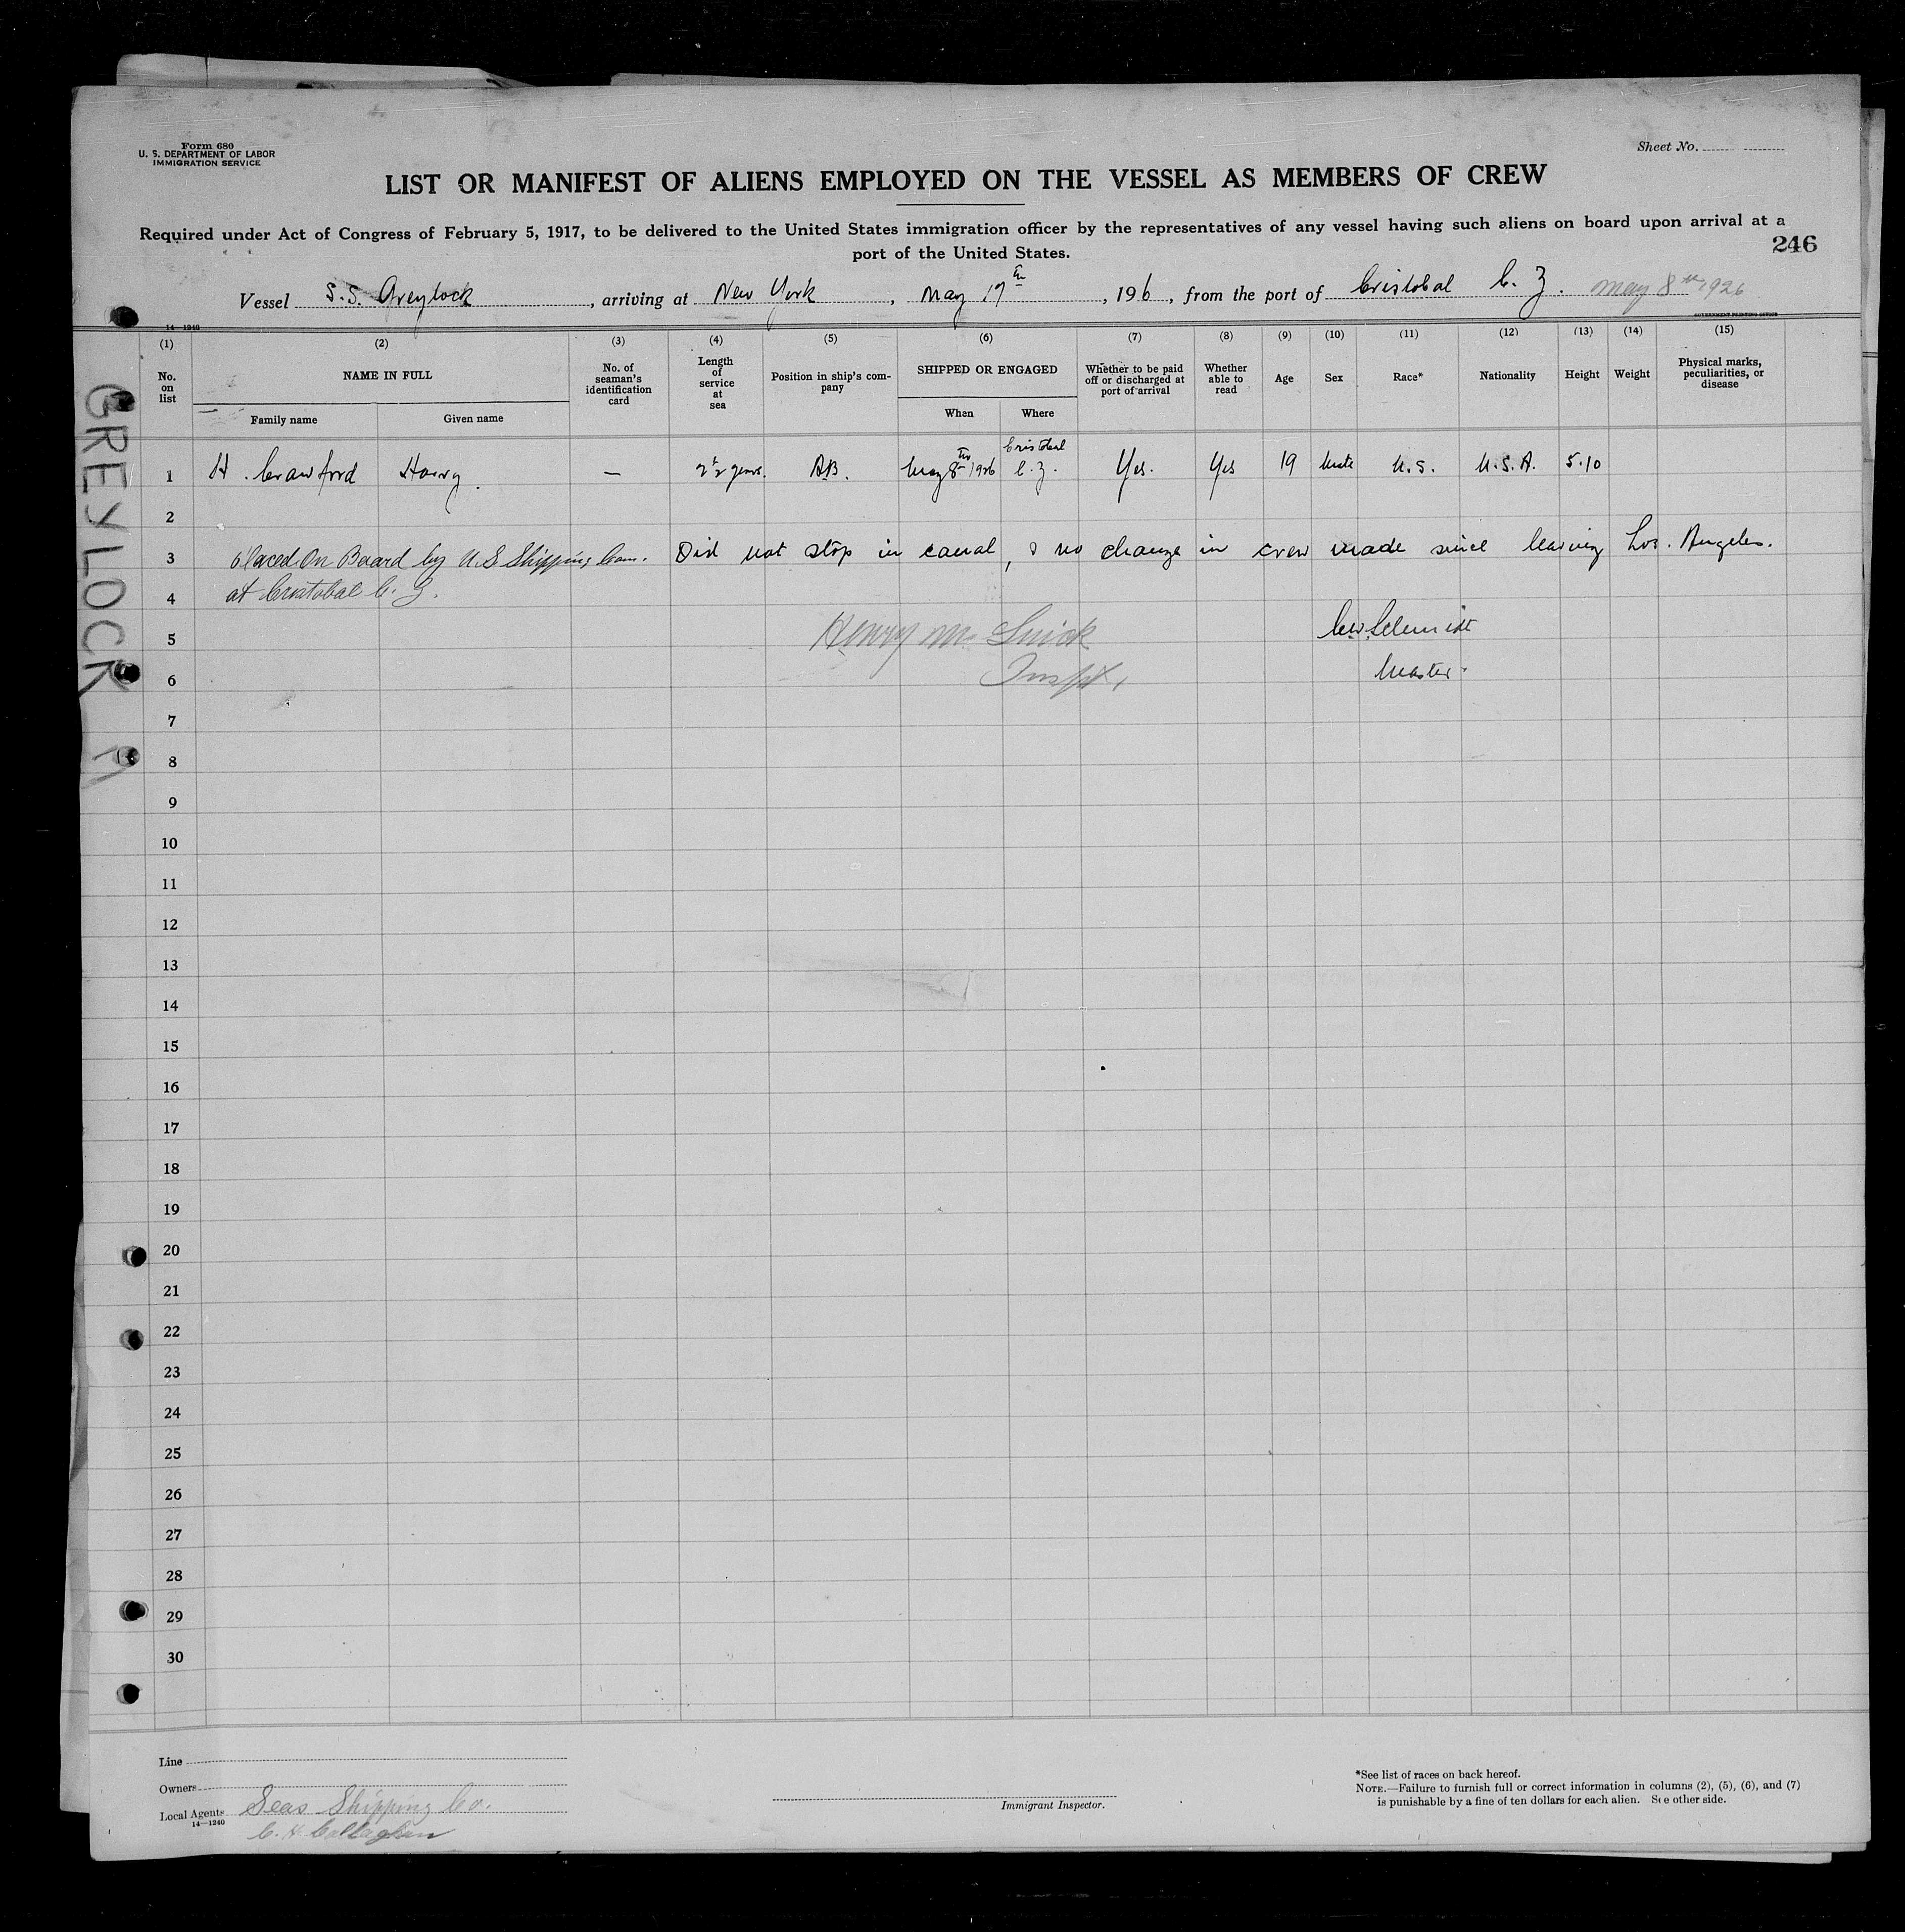 Form 680
U. S. DEPARTMENT OF LABOR
IMMIGRATION SERVICE
Sheet No.
LIST OR MANIFEST OF ALIENS EMPLOYED ON THE VESSEL AS MEMBERS OF CREW
Required under Act of Congress of February 5, 1917, to be delivered to the United States immigration officer by the representatives of any vessel having such aliens on board upon arrival at a
port of the United States.
246
Vessel S.S. Greylock, arriving at New York, May 17th, 1926, from the port of Cristobal C. Z. May 8th 1926
14—1240
GOVERNMENT PRINTING OFFICE
(1) (2) (3) (4) (5) (6) (7) (8) (9) (10) (11) (12) (13) (14) (15)
No. on list NAME IN FULL Family name Given name No. of seaman's identification card Length of service at sea Position in ship's company SHIPPED OR ENGAGED When Where Whether to be paid off or discharged at port of arrival Whether able to read Age Sex Race* Nationality Height Weight Physical marks, peculiarities, or disease
1 H. Crawford Harry. — 2½ years. AB. May 8th 1926 Cristobal C.Z. Yes. Yes 19 Male U.S. U.S.A. 5.10
2
3 Placed On Board by U.S Shipping Com. Did not stop in canal, & no change in crew made since leaving Los. Angeles.
4 at Cristobal C. Z.
5 Henry Schmidt
6 Inspt, Master.
7
8
9
10
11
12
13
14
15
16
17
18
19
20
21
22
23
24
25
26
27
28
29
30
GREYLOCK
Line
Owners
Local Agents Seas Shipping Co.
14—1240
C. H. Callaghan
Immigrant Inspector.
*See list of races on back hereof.
NOTE.—Failure to furnish full or correct information in columns (2), (5), (6), and (7)
is punishable by a fine of ten dollars for each alien. See other side.